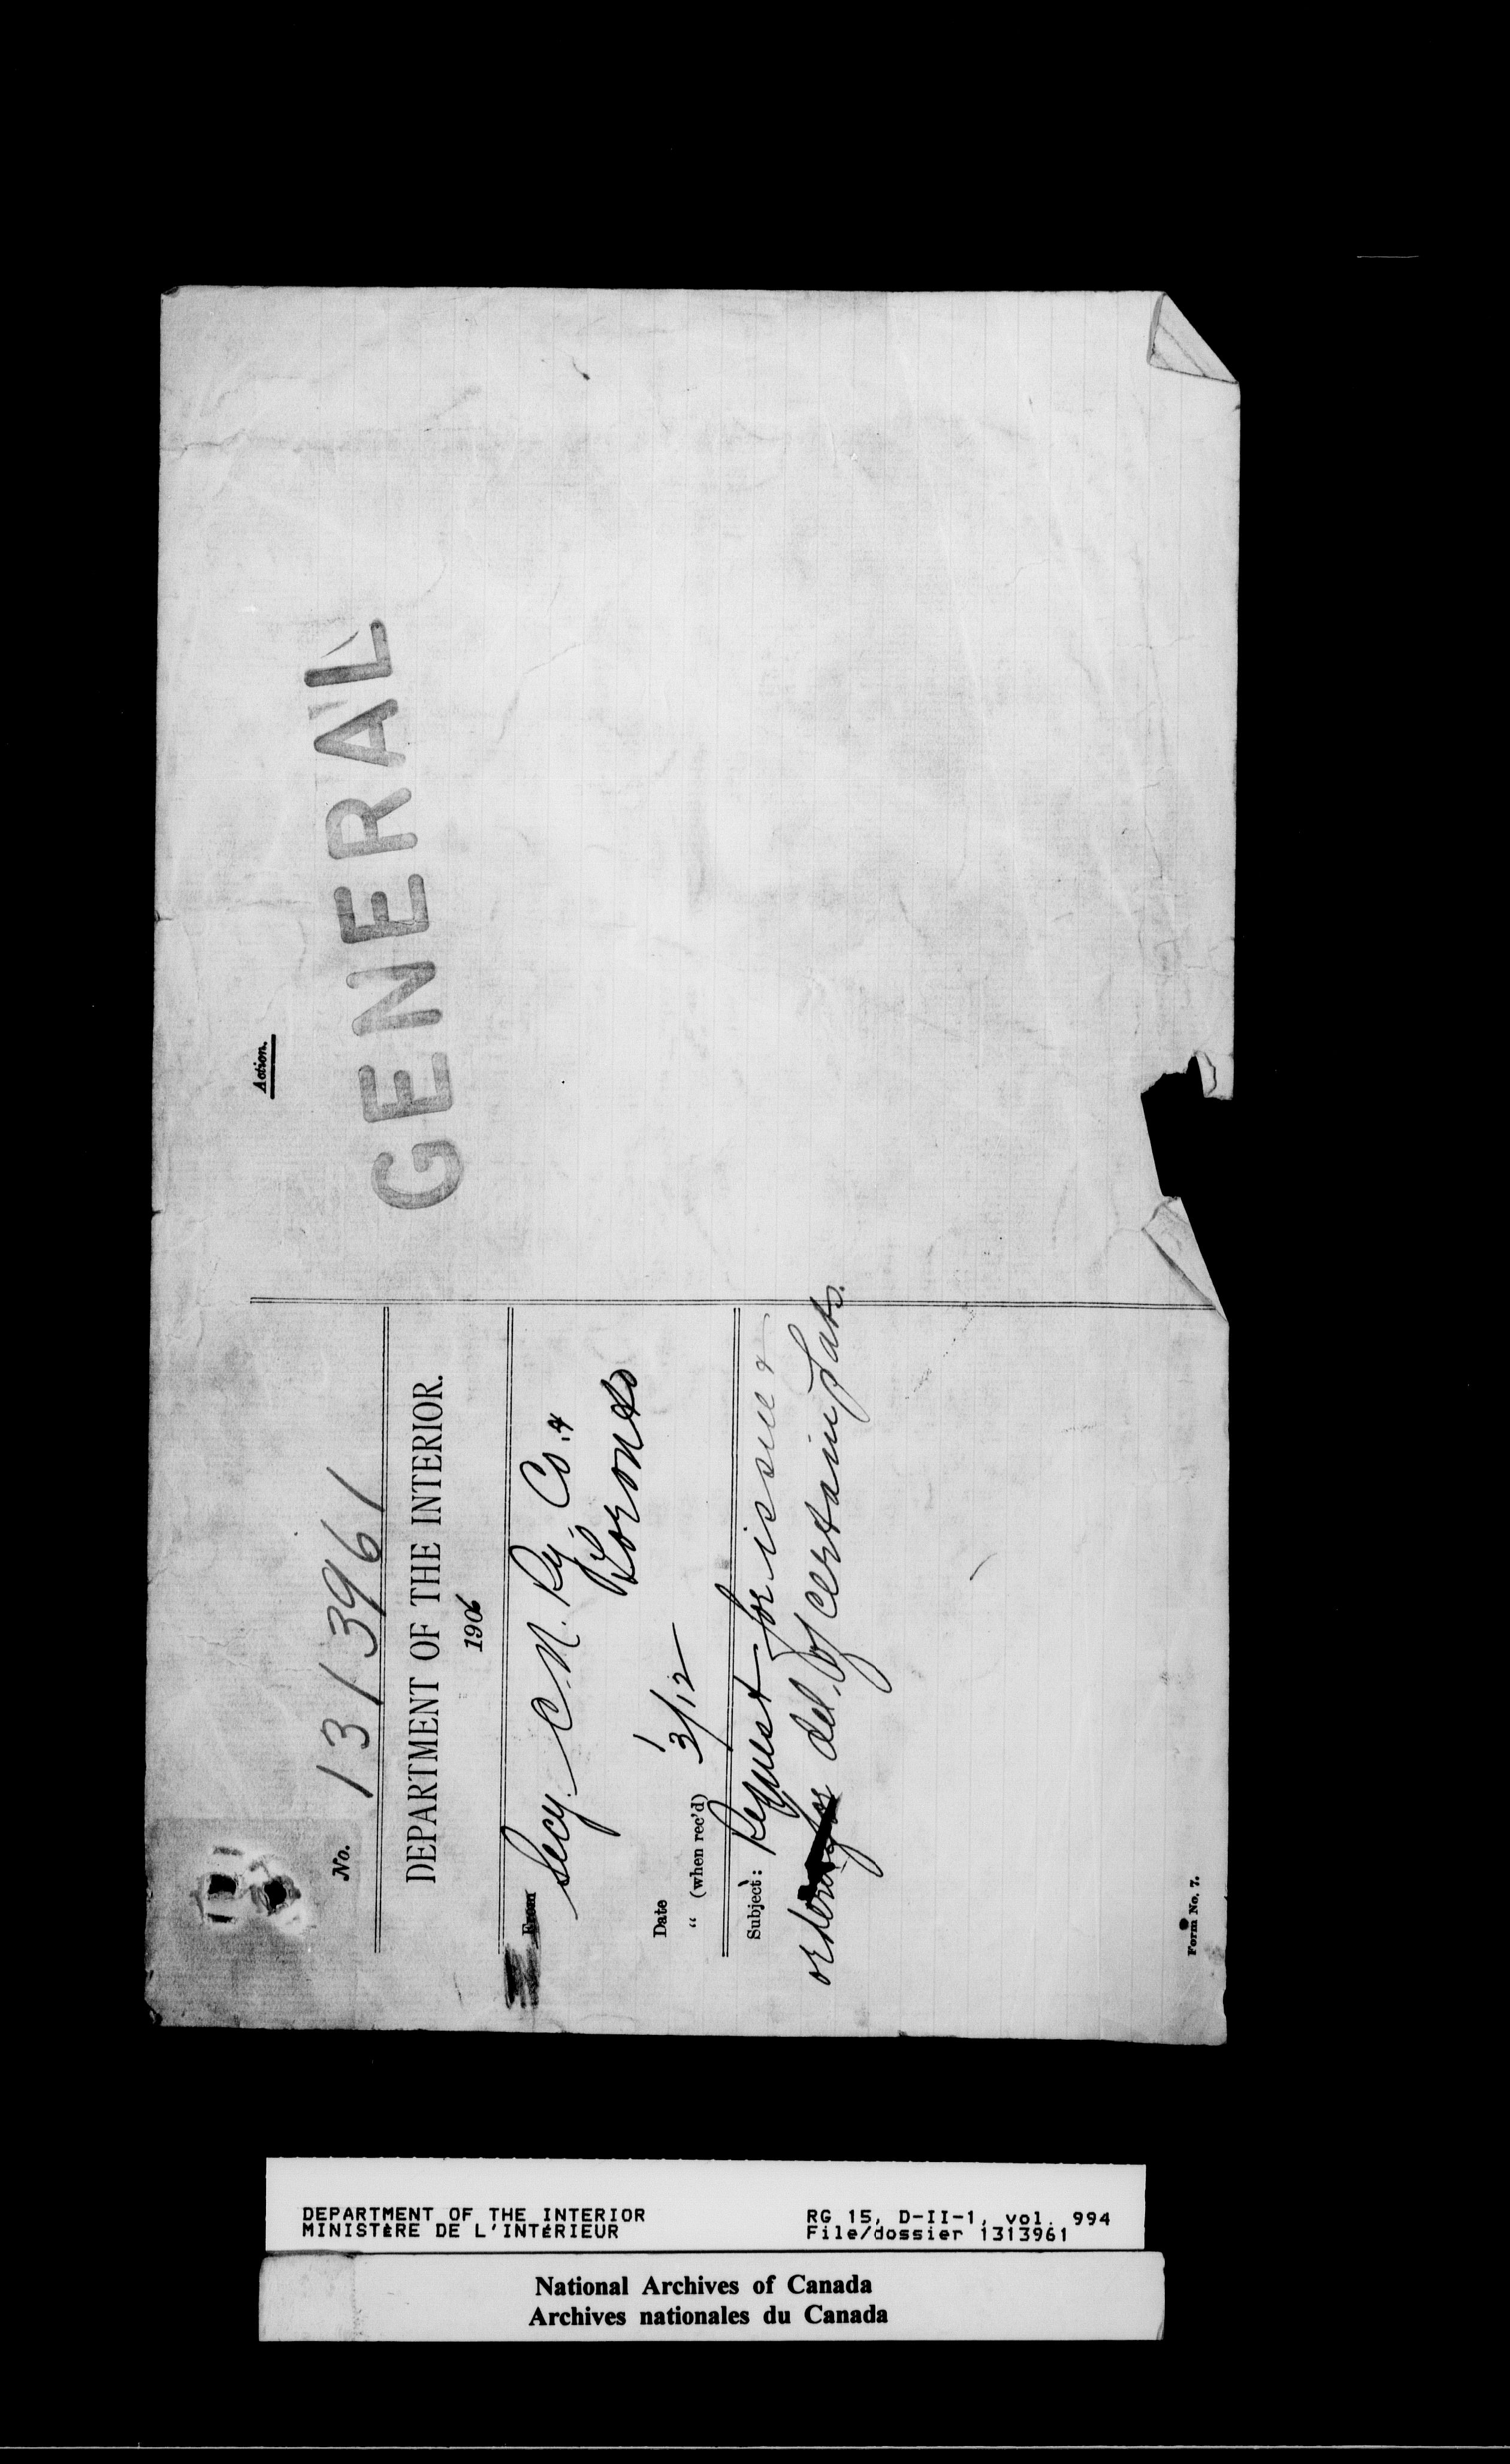 No. 1313961
DEPARTMENT OF THE INTERIOR.
1906
From Secy. C. N. Ry. Co.
Toronto
Date 1
" (when rec'd) 3/12
Subject: Request for issue &
del. of certain Pats.
Form No. 7.
Action.
GENERAL
DEPARTMENT OF THE INTERIOR
MINISTÈRE DE L'INTÉRIEUR
RG 15, D-II-1, vol. 994
File/dossier 1313961
National Archives of Canada
Archives nationales du Canada